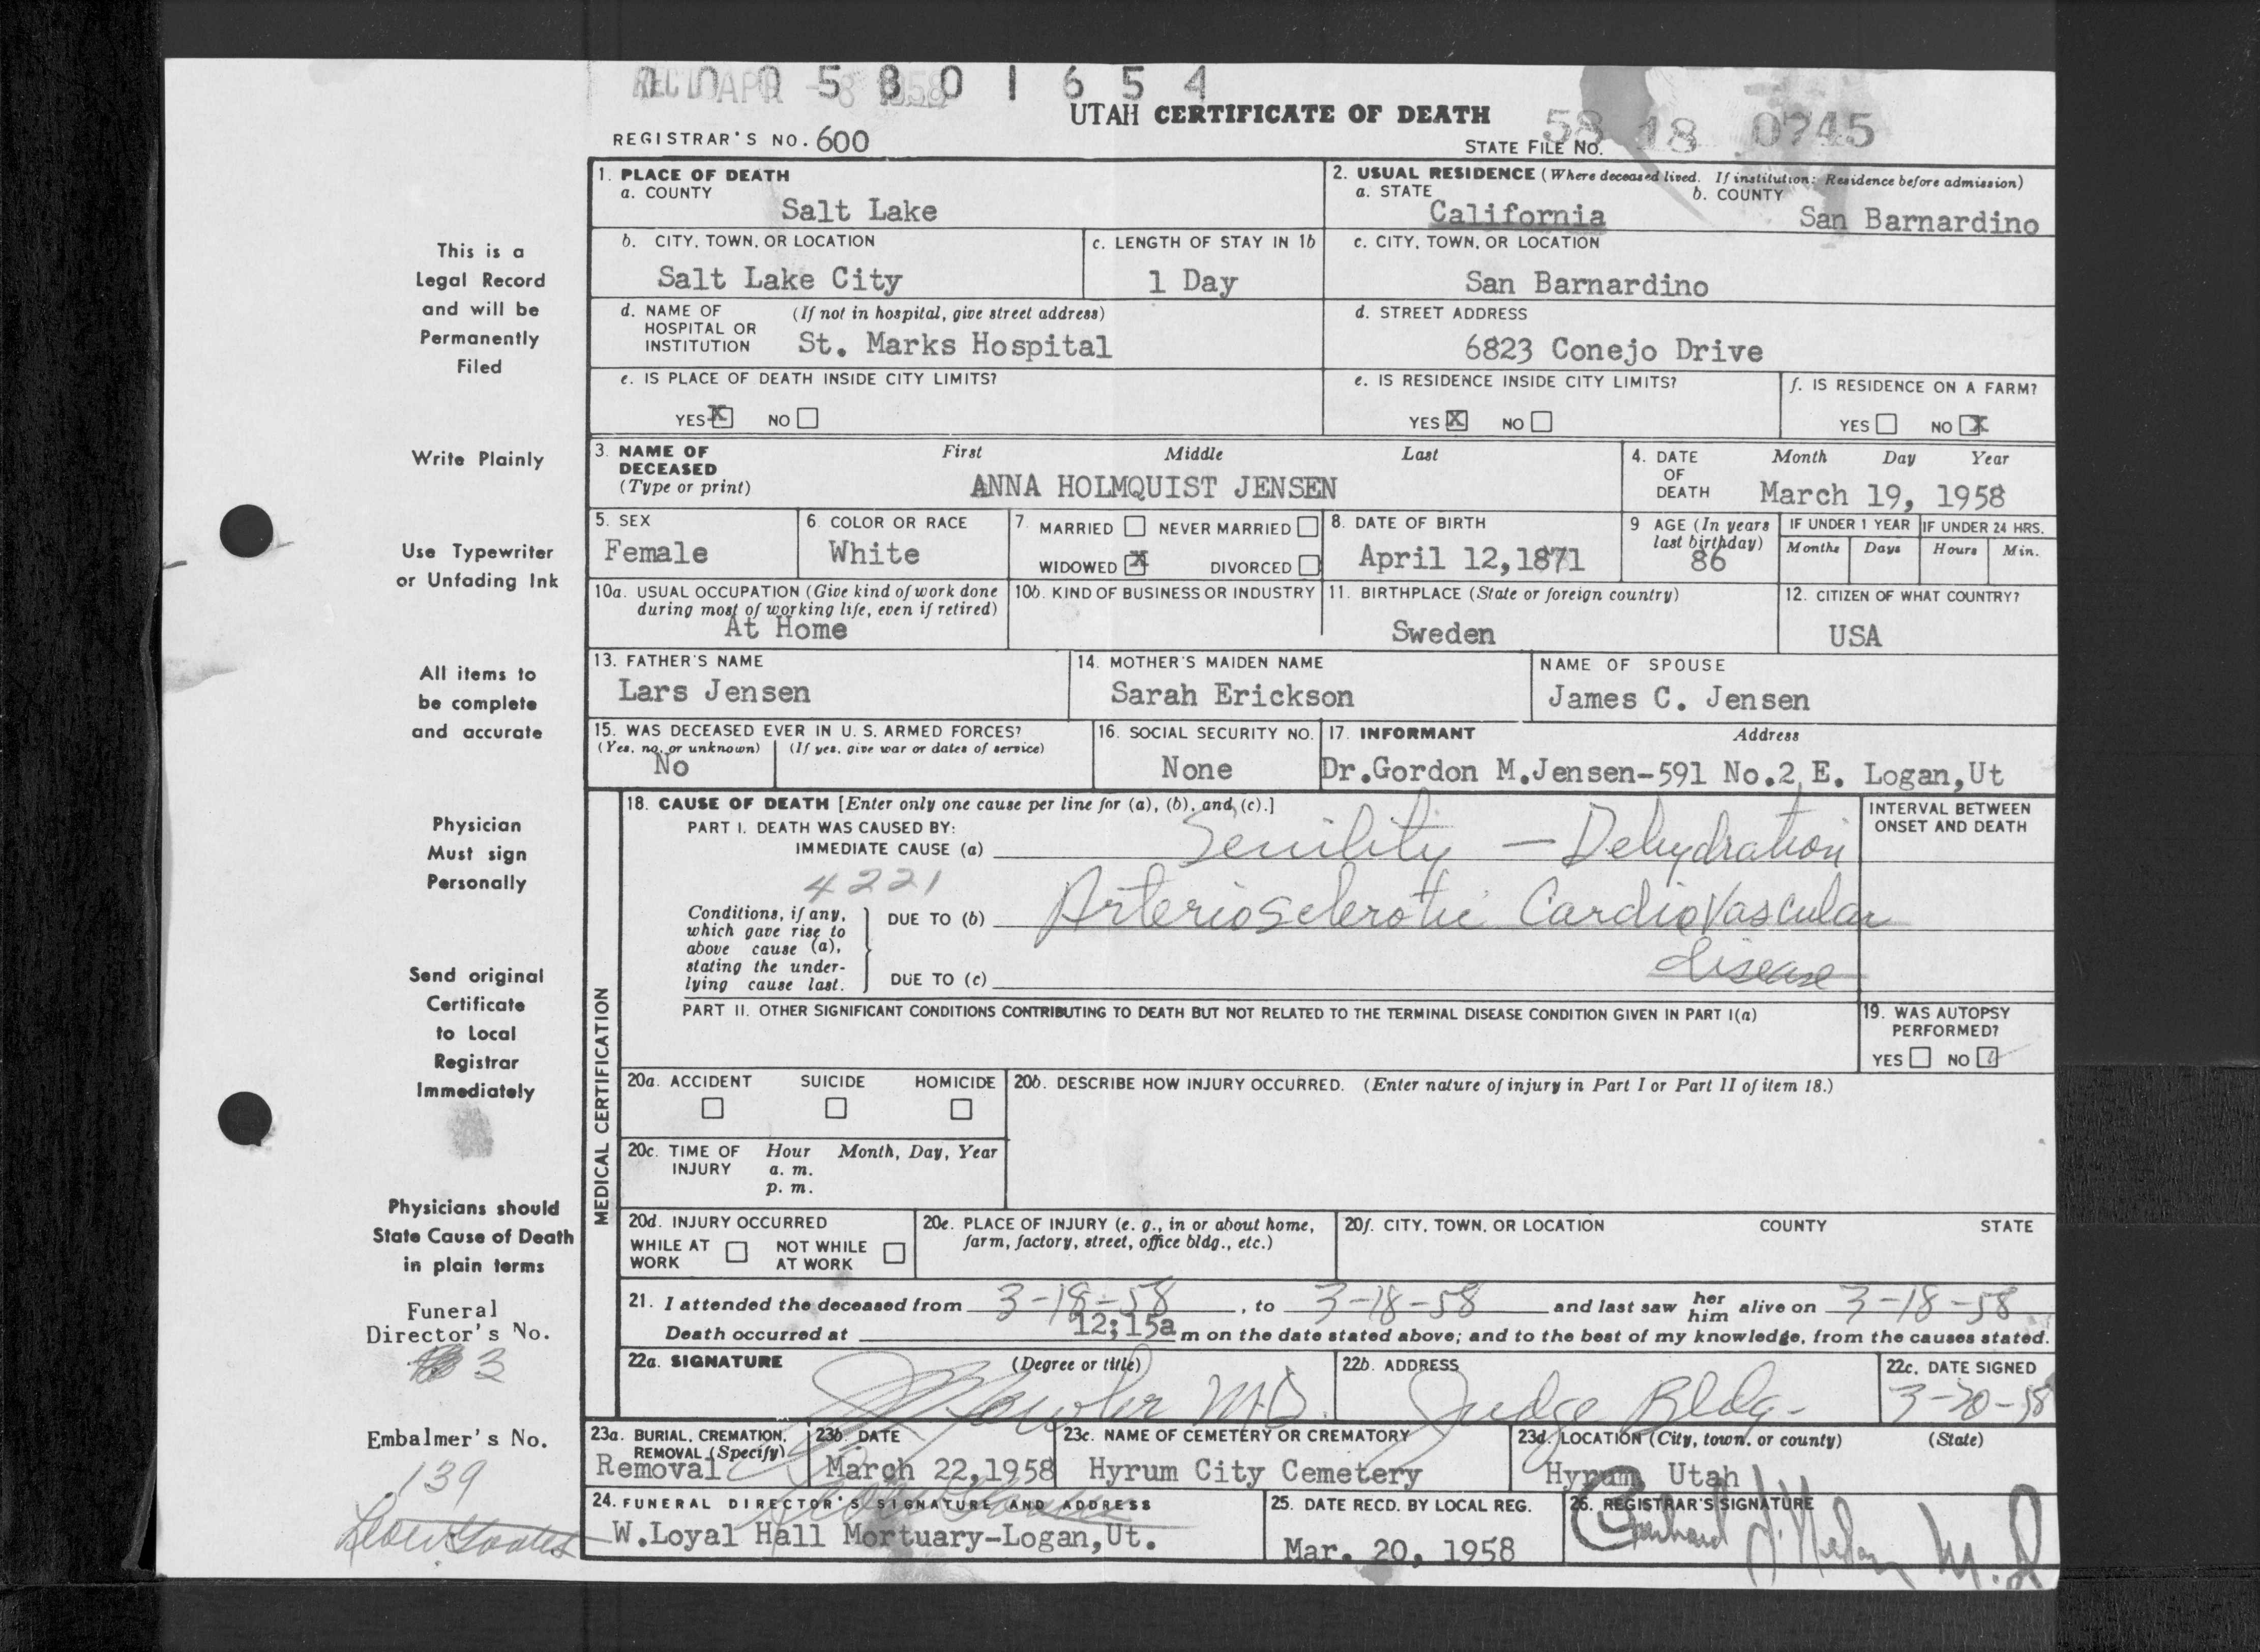 REC'D APR - 8 1958
1 0 0 5 8 0 1 6 5 4
UTAH CERTIFICATE OF DEATH
REGISTRAR'S NO. 600
STATE FILE NO. 58 18 0745
1. PLACE OF DEATH
a. COUNTY
Salt Lake
2. USUAL RESIDENCE (Where deceased lived. If institution: Residence before admission)
a. STATE b. COUNTY
California San Barnardino
b. CITY, TOWN, OR LOCATION
Salt Lake City
c. LENGTH OF STAY IN 1b
1 Day
c. CITY, TOWN, OR LOCATION
San Barnardino
d. NAME OF (If not in hospital, give street address)
HOSPITAL OR
INSTITUTION St. Marks Hospital
d. STREET ADDRESS
6823 Conejo Drive
e. IS PLACE OF DEATH INSIDE CITY LIMITS?
YES X NO
e. IS RESIDENCE INSIDE CITY LIMITS?
YES X NO
f. IS RESIDENCE ON A FARM?
YES NO X
3. NAME OF First Middle Last
DECEASED
(Type or print) ANNA HOLMQUIST JENSEN
4. DATE Month Day Year
OF
DEATH March 19, 1958
5. SEX
Female
6. COLOR OR RACE
White
7. MARRIED NEVER MARRIED
WIDOWED X DIVORCED
8. DATE OF BIRTH
April 12,1871
9 AGE (In years
last birthday)
86
IF UNDER 1 YEAR IF UNDER 24 HRS.
Months Days Hours Min.
10a. USUAL OCCUPATION (Give kind of work done
during most of working life, even if retired)
At Home
10b. KIND OF BUSINESS OR INDUSTRY
11. BIRTHPLACE (State or foreign country)
Sweden
12. CITIZEN OF WHAT COUNTRY?
USA
13. FATHER'S NAME
Lars Jensen
14. MOTHER'S MAIDEN NAME
Sarah Erickson
NAME OF SPOUSE
James C. Jensen
15. WAS DECEASED EVER IN U. S. ARMED FORCES?
(Yes, no, or unknown) (If yes, give war or dates of service)
No
16. SOCIAL SECURITY NO.
None
17. INFORMANT Address
Dr.Gordon M.Jensen-591 No.2 E. Logan,Ut
MEDICAL CERTIFICATION
18. CAUSE OF DEATH [Enter only one cause per line for (a), (b), and (c).]
PART I. DEATH WAS CAUSED BY:
IMMEDIATE CAUSE (a) Senility - Dehydration
INTERVAL BETWEEN
ONSET AND DEATH
4221
Conditions, if any,
which gave rise to
above cause (a),
stating the under-
lying cause last.
DUE TO (b) Arteriosclerotic CardioVascular
disease
DUE TO (c)
PART II. OTHER SIGNIFICANT CONDITIONS CONTRIBUTING TO DEATH BUT NOT RELATED TO THE TERMINAL DISEASE CONDITION GIVEN IN PART I(a)
19. WAS AUTOPSY
PERFORMED?
YES NO
20a. ACCIDENT SUICIDE HOMICIDE
20b. DESCRIBE HOW INJURY OCCURRED. (Enter nature of injury in Part I or Part II of item 18.)
20c. TIME OF Hour Month, Day, Year
INJURY a. m.
p. m.
20d. INJURY OCCURRED
WHILE AT NOT WHILE
WORK AT WORK
20e. PLACE OF INJURY (e. g., in or about home,
farm, factory, street, office bldg., etc.)
20f. CITY, TOWN, OR LOCATION COUNTY STATE
21. I attended the deceased from 3-18-58, to 3-18-58 and last saw her him alive on 3-18-58
Death occurred at 12;15a m on the date stated above; and to the best of my knowledge, from the causes stated.
22a. SIGNATURE (Degree or title)
M.D.
22b. ADDRESS
Judge Bldg-
22c. DATE SIGNED
3-20-58
23a. BURIAL, CREMATION,
REMOVAL (Specify)
Removal
23b. DATE
March 22,1958
23c. NAME OF CEMETERY OR CREMATORY
Hyrum City Cemetery
23d. LOCATION (City, town, or county) (State)
Hyrum Utah
24. FUNERAL DIRECTOR'S SIGNATURE AND ADDRESS
W.Loyal Hall Mortuary-Logan,Ut.
25. DATE RECD. BY LOCAL REG.
Mar. 20, 1958
26. REGISTRAR'S SIGNATURE
M.D.
This is a
Legal Record
and will be
Permanently
Filed
Write Plainly
Use Typewriter
or Unfading Ink
All items to
be complete
and accurate
Physician
Must sign
Personally
Send original
Certificate
to Local
Registrar
Immediately
Physicians should
State Cause of Death
in plain terms
Funeral
Director's No.
3
Embalmer's No.
139